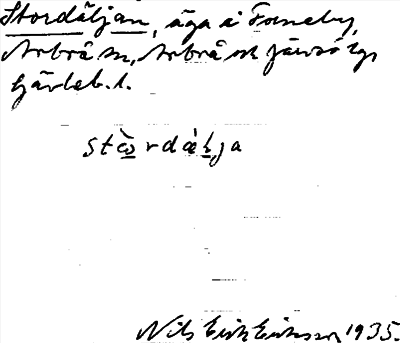 Stordäljan, äga å Forneby,
Arbrå sn, Arbrå och Järvsö tg,
Gävleb. l.
stòrdälja
Nils Erik Eriksson 1935.